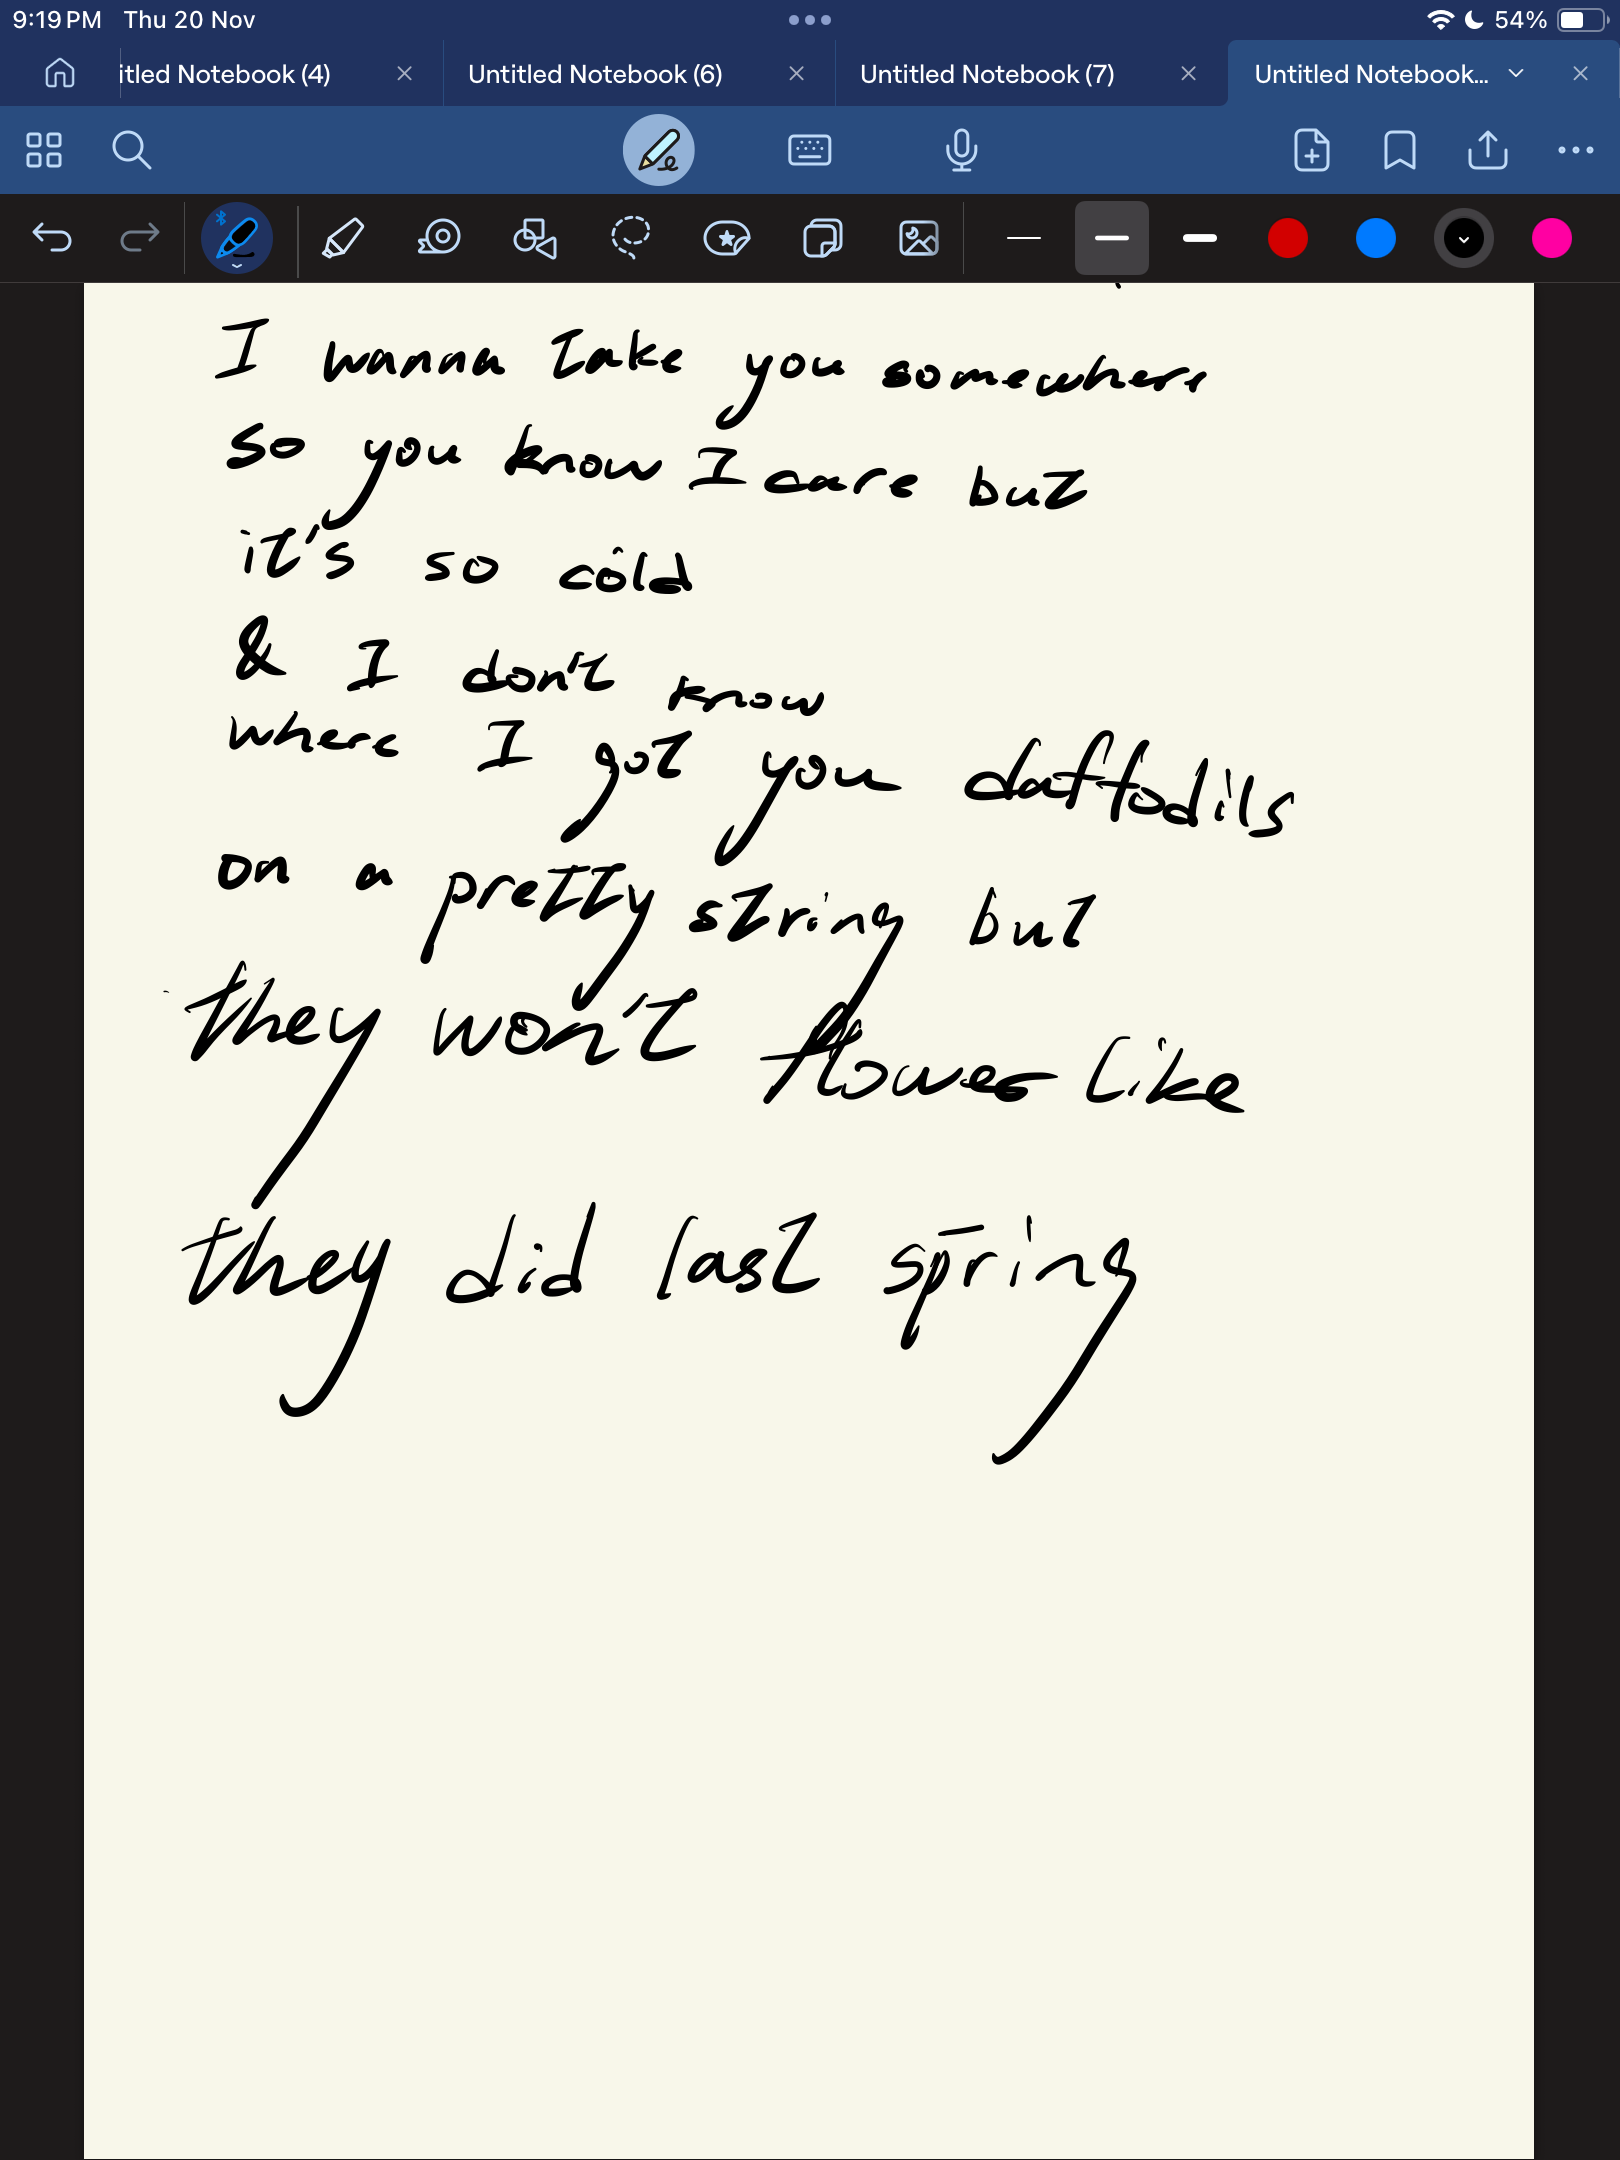 9:19 PM Thu 20 Nov 54%
itled Notebook (4) Untitled Notebook (6) Untitled Notebook (7) Untitled Notebook...
I wanna take you somewhere
so you know I care but
it's so cold
& I don't know
where I got you daffodils
on a pretty string but
they won't flower like
they did last spring